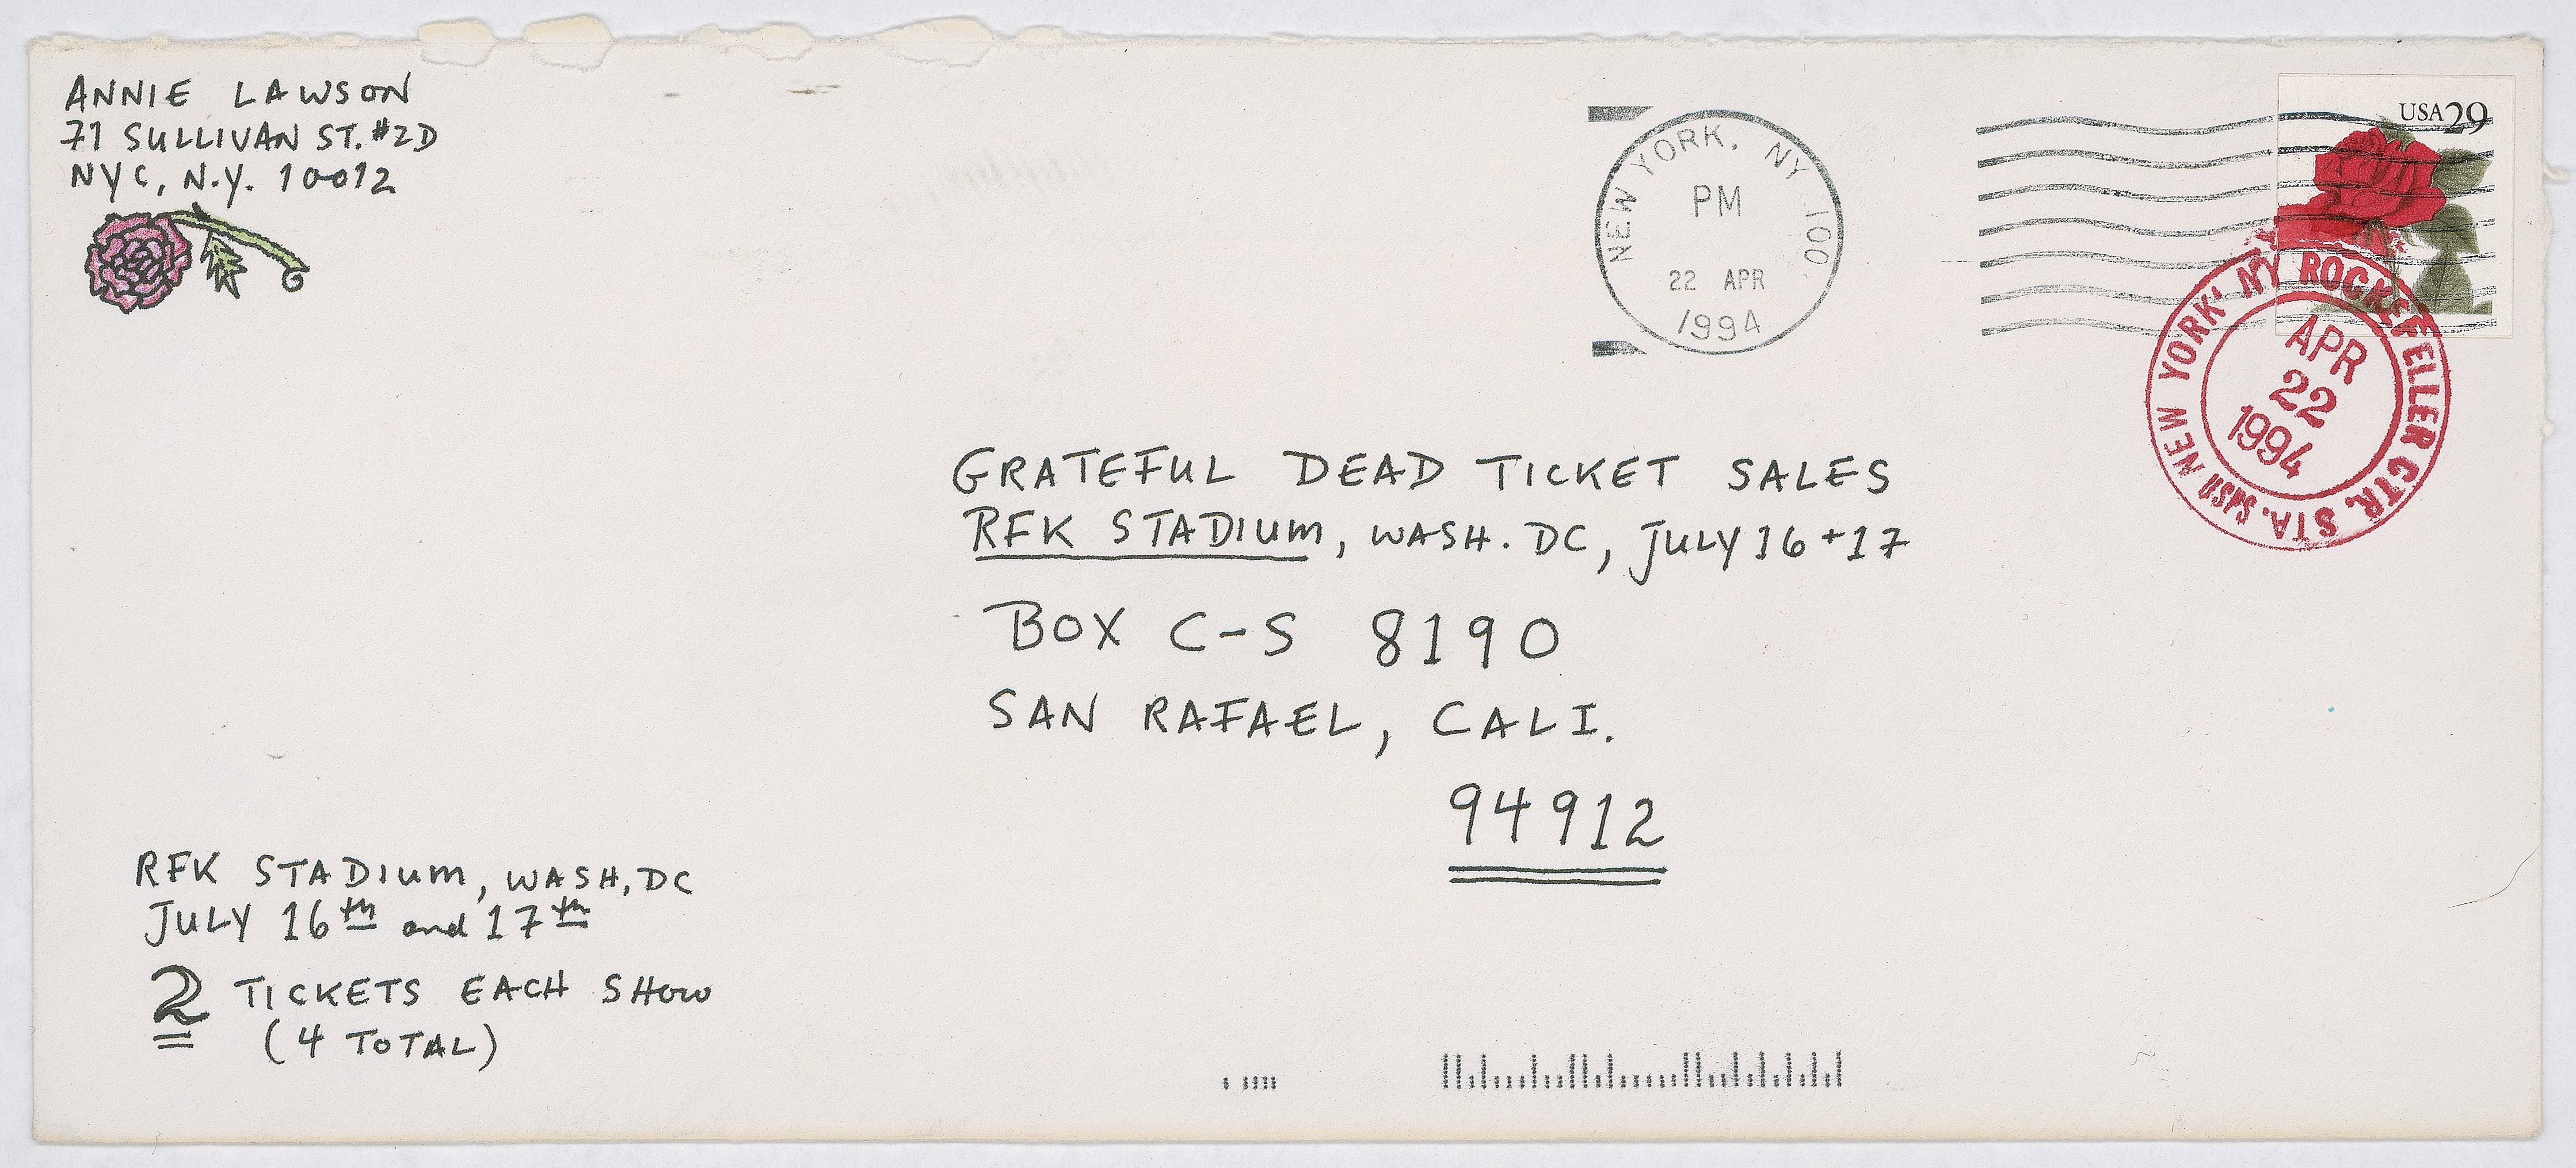 ANNIE LAWSON
71 SULLIVAN ST. #2D
NYC, N.Y. 10012
NEW YORK, NY 100
PM
22 APR
1994
USA 29
NEW YORK, NY ROCKEFELLER CTR. STA. USPS
APR
22
1994
GRATEFUL DEAD TICKET SALES
RFK STADIUM, WASH. DC, JULY 16 + 17
BOX C-S 8190
SAN RAFAEL, CALI.
94912
RFK STADIUM, WASH, DC
JULY 16th and 17th
2 TICKETS EACH SHOW
(4 TOTAL)